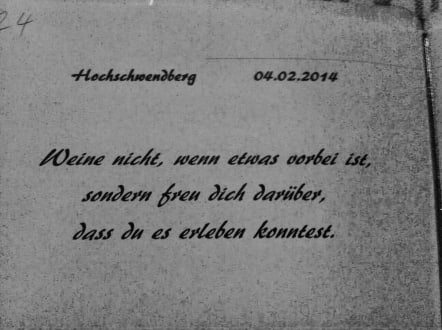 24
Hochschwendberg 04.02.2014
Weine nicht, wenn etwas vorbei ist,
sondern freu dich darüber,
dass du es erleben konntest.